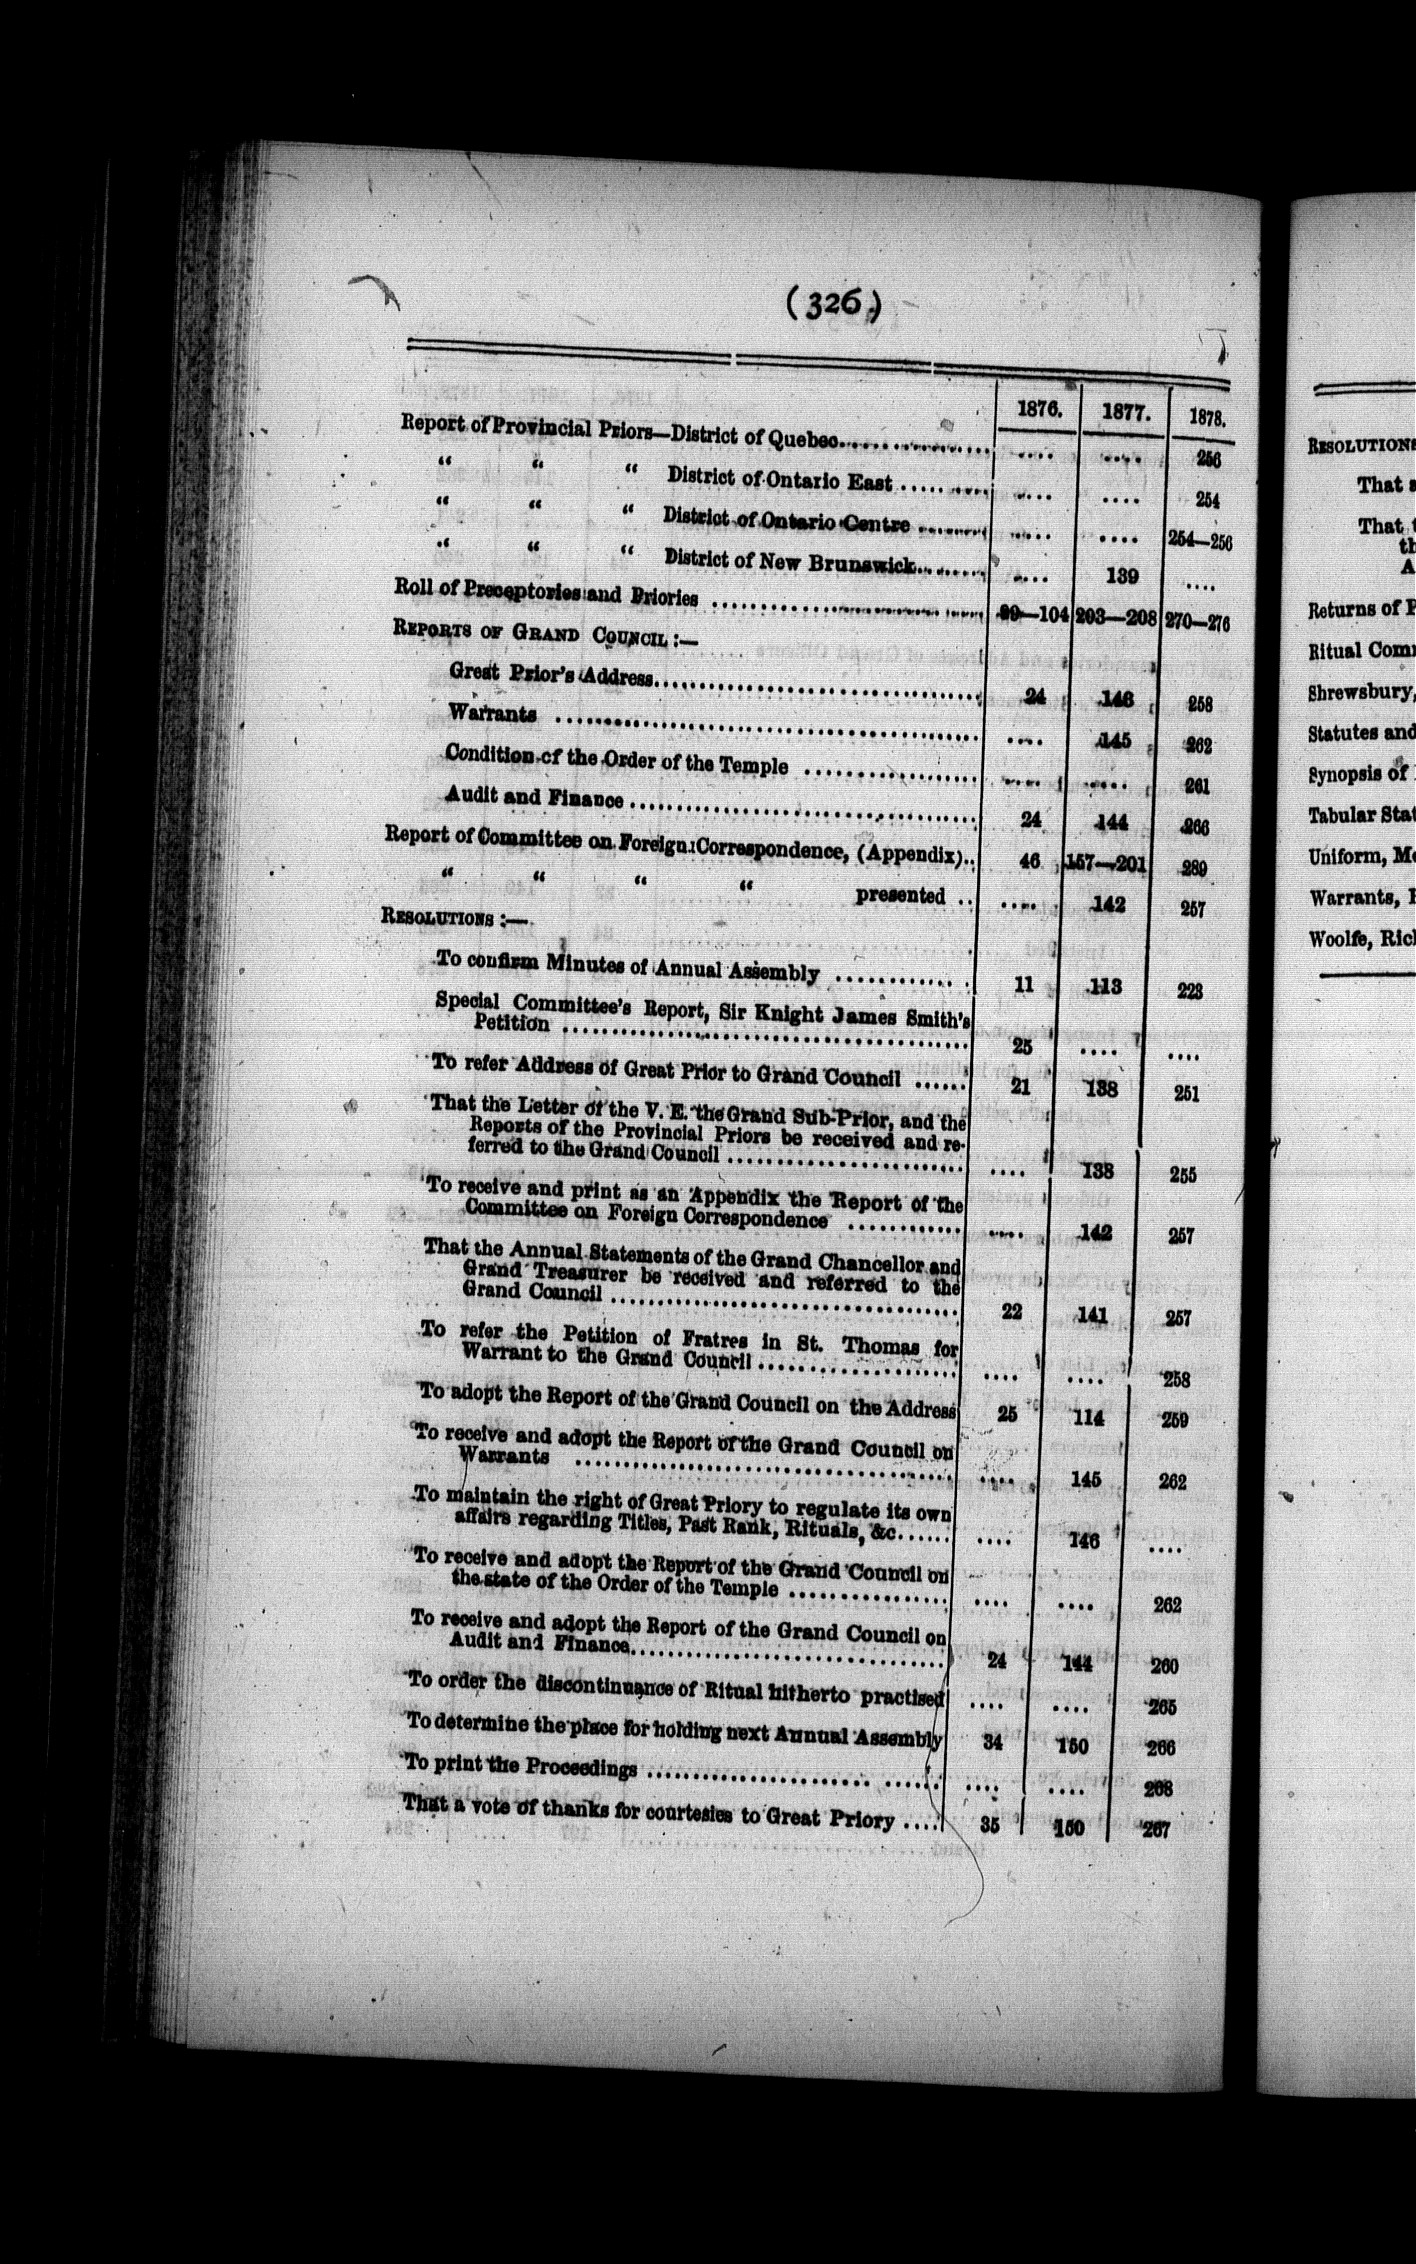 (326.)
1876. 1877. 1878.
Report of Provincial Priors—District of Quebec .... .... 256
“ “ “ District of Ontario East .... .... 254
“ “ “ District of Ontario Centre .... .... 254—256
“ “ “ District of New Brunswick .... 139 ....
Roll of Preceptories and Priories 99—104 203—208 270—276
REPORTS OF GRAND COUNCIL :—
Great Prior's Address 24 146 258
Warrants .... 145 262
Condition of the Order of the Temple .... .... 261
Audit and Finance 24 144 266
Report of Committee on Foreign Correspondence, (Appendix).. 46 157—201 289
“ “ “ “ presented .. .... 142 257
RESOLUTIONS :—
To confirm Minutes of Annual Assembly 11 113 223
Special Committee's Report, Sir Knight James Smith's
Petition 25 .... ....
To refer Address of Great Prior to Grand Council 21 138 251
That the Letter of the V. E. the Grand Sub-Prior, and the
Reports of the Provincial Priors be received and re-
ferred to the Grand Council .... 138 255
To receive and print as an Appendix the Report of the
Committee on Foreign Correspondence .... 142 257
That the Annual Statements of the Grand Chancellor and
Grand Treasurer be received and referred to the
Grand Council 22 141 257
To refer the Petition of Fratres in St. Thomas for
Warrant to the Grand Council .... .... 258
To adopt the Report of the Grand Council on the Address 25 114 259
To receive and adopt the Report of the Grand Council on
Warrants .... 145 262
To maintain the right of Great Priory to regulate its own
affairs regarding Titles, Past Rank, Rituals, &c. .... 146 ....
To receive and adopt the Report of the Grand Council on
the state of the Order of the Temple .... .... 262
To receive and adopt the Report of the Grand Council on
Audit and Finance 24 144 260
To order the discontinuance of Ritual hitherto practised .... .... 265
To determine the place for holding next Annual Assembly 34 150 266
To print the Proceedings .... .... 268
That a vote of thanks for courtesies to Great Priory .... 35 150 267
RESOLUTIONS
That
That
Returns of
Ritual
Shrewsbury,
Statutes and
Synopsis of
Tabular
Uniform,
Warrants,
Woolfe,